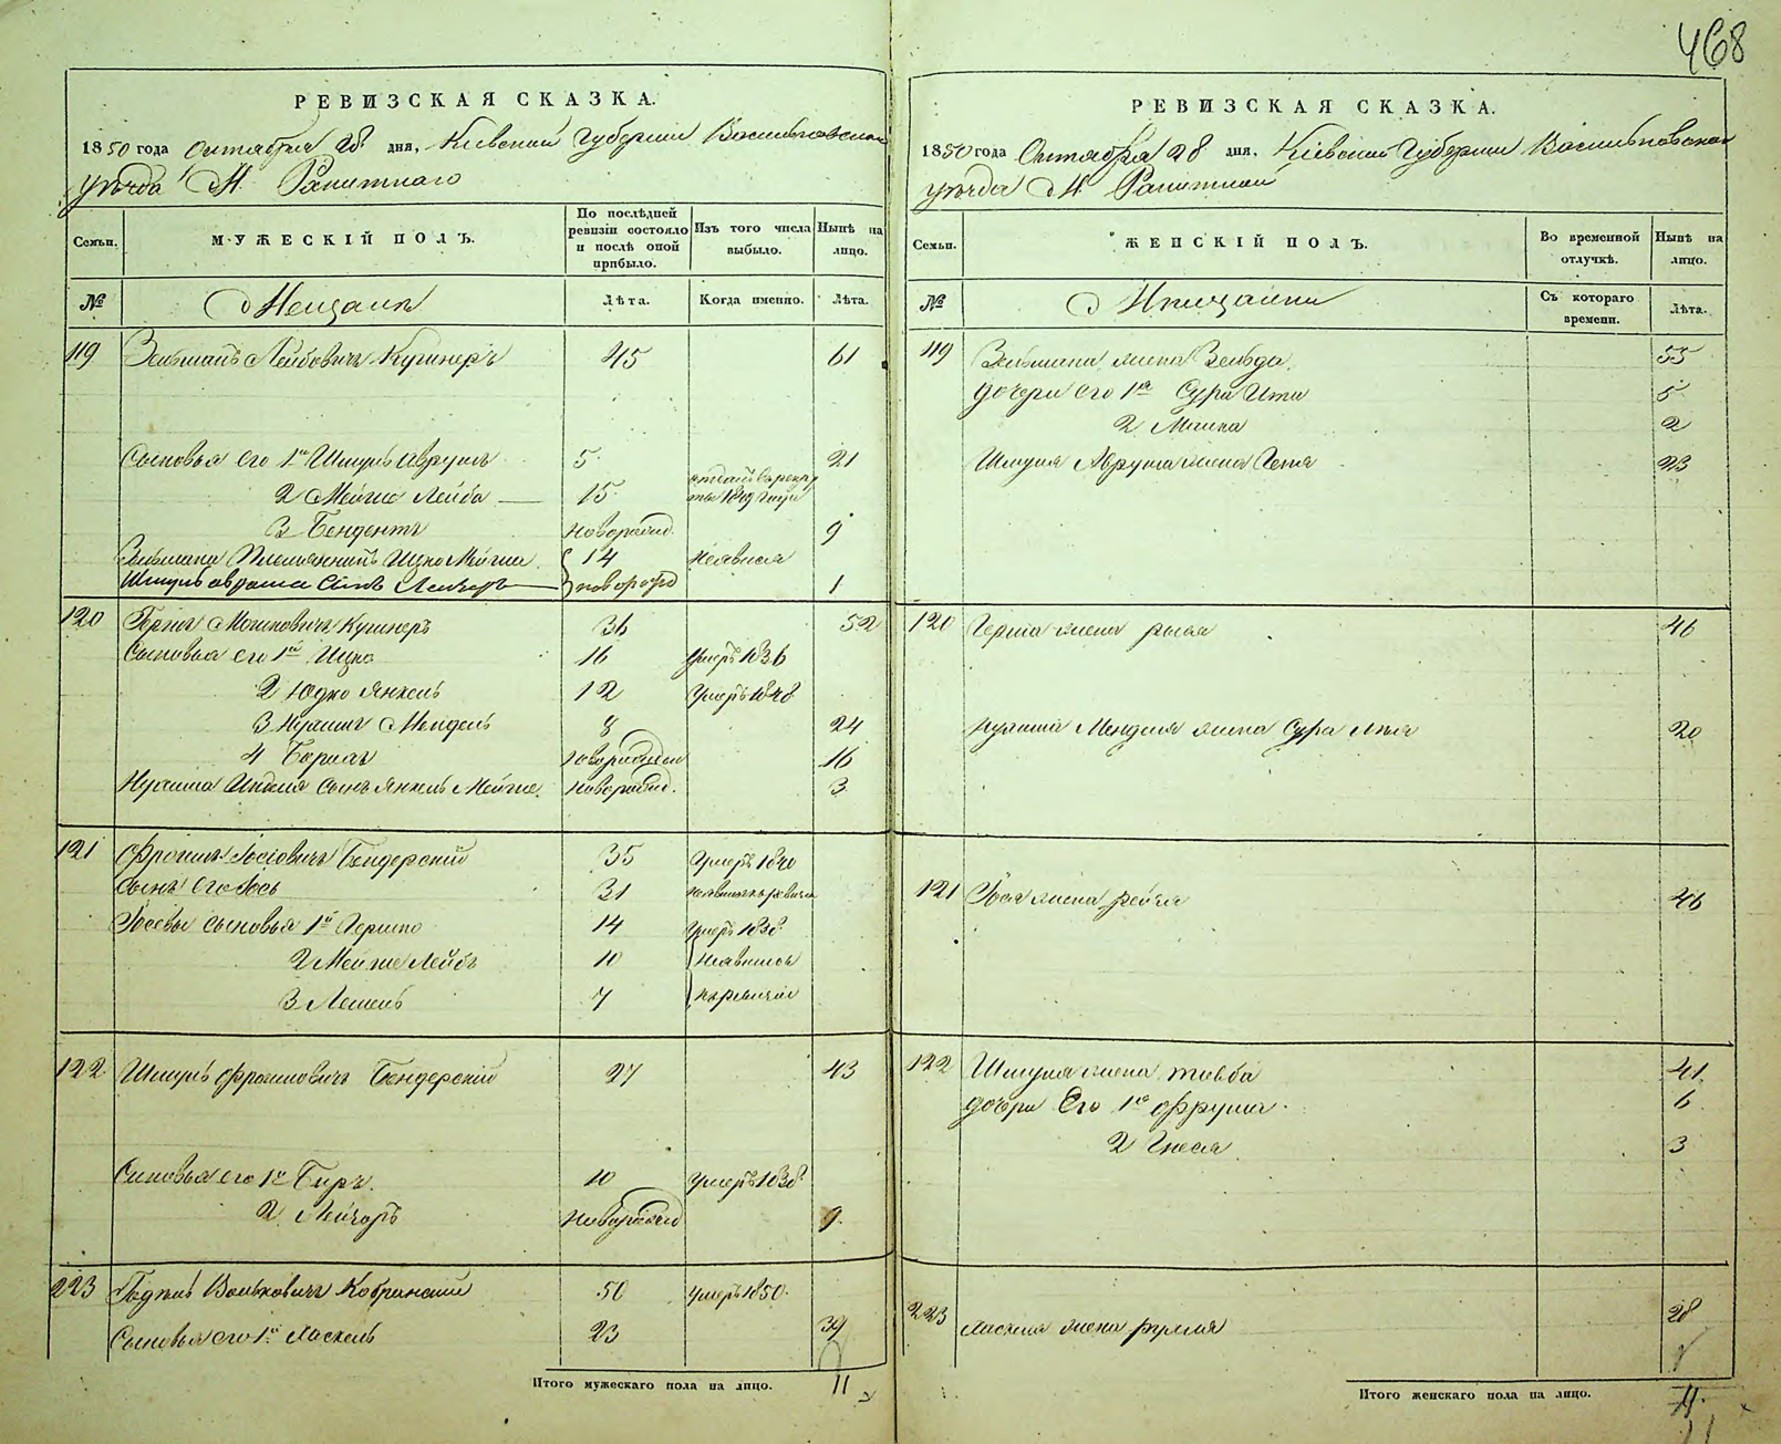 468
РЕВИЗСКАЯ СКАЗКА.
1850 года Октября 28 дня, Киевской Губернии Васильковскаго
уезда М. Ракитнаго
Семьи.
МУЖЕСКІЙ ПОЛЪ.
По послѣдней ревизіи состояло и послѣ оной прибыло.
Изъ того числа выбыло.
Нынѣ на лицо.
№
Мещане
Лѣта.
Когда именно.
Лѣта.
119 Зельманъ Лейбовичъ Кушнеръ 45 61
Сыновья его 1й Шмуль Аврумъ 5 21
2 Мейше Лейба 15 1849
3 Бенденть новорожд. 9
Зельмана Племянникъ Ицко Мейше 14 Неявился
Шмуль Аврама Сынъ Лейзеръ новорожд 1
120 Герш Мошковичъ Кушнеръ 36 52
Сыновья его 1й Ицко 16 Умеръ 1836
2 Юдко Янкель 12 Умеръ 1848
3 Нухимъ Мендель 8 24
4 Борох новорожден 16
Нухима Сынъ Янкель Мейше новорожд. 3
121 Фроимъ Іосіовичъ Бендерскій 35 Умеръ 1840
Сынъ Его Іось 31
Іосевы сыновья 1й Гершко 14 Умеръ 1838
2 Мейше Лейбъ 10 Неявился
3 7 к ревизіи
122 Шмуль Фроимовичъ Бендерскій 27 43
Сыновья его 1й Беръ. 10 Умеръ 1838
2 Лейзоръ Новорожд 9.
223 Волковичъ Кобринскій 50 Умеръ 1850.
Сыновья его 1й Хаскель 23 39
Итого мужескаго пола на лицо. 11
РЕВИЗСКАЯ СКАЗКА.
1850 года Октября 28 дня, Кіевской Губерніи Васильковскаго
уезда М. Ракитной
Семьи.
ЖЕНСКІЙ ПОЛЪ.
Во временной отлучкѣ.
Нынѣ на лицо.
№
Мещанки
Съ котораго времени.
Лѣта.
119 Зельмана жена Зельда. 55
дочери его 1я Сура Ити 5
2 Минка 2
Шмуля Аврума жена Хотя 23
120 Герша жена рыся 46
Нухима Менделя жена Сура 20
121 Іося жена рейзя 46
122 Шмуля жена товба 41.
дочери Его 1я Фрума 6.
2 Гнеся 3
223 Хаскеля жена рухля 28
Итого женскаго пола на лицо. 11.
11